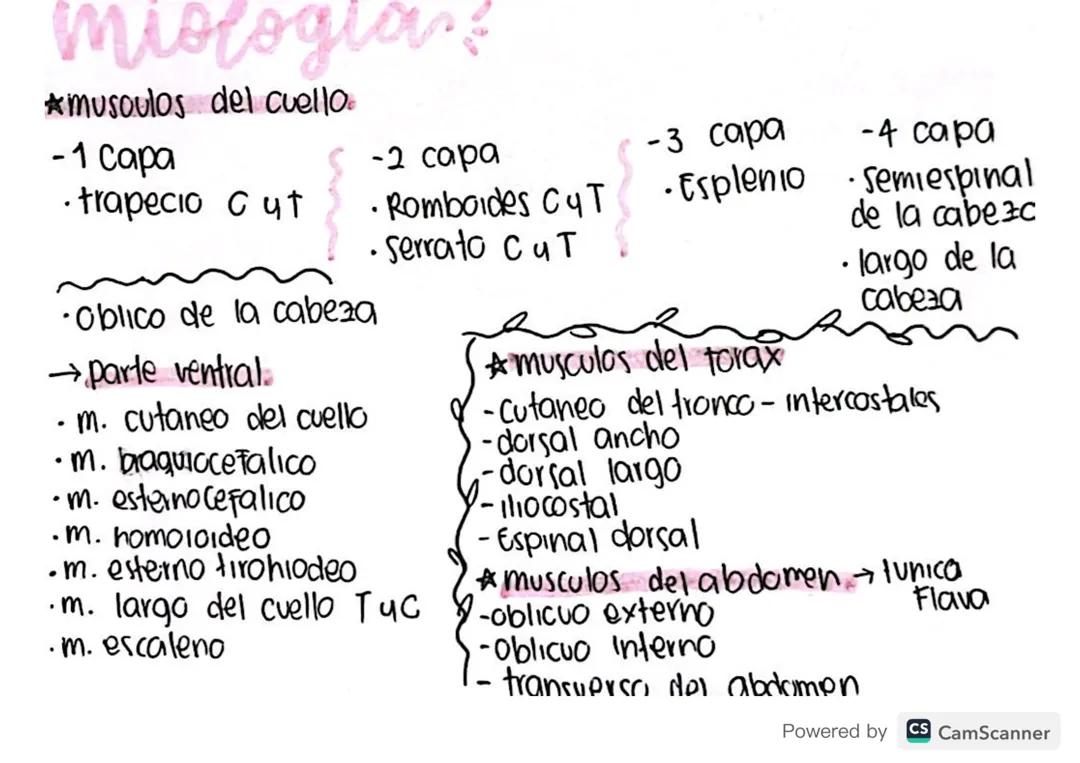 miologia
★musculos del cuello
-1 Capa
·trapecio C y t
-2 capa
·Romboides C y T
·serrato C y T
-3 capa
·Esplenio
-4 capa
·semiespinal
de la cabeza
·largo de la
cabeza
·oblico de la cabeza
→parte ventral
·m. cutaneo del cuello
·m. braquiocefalico
·m. esternocefalico
·m. homoioideo
·m. esterno tirohiodeo
·m. largo del cuello T y C
·m. escaleno
★musculos del torax
-cutaneo del tronco - intercostales
-dorsal ancho
-dorsal largo
-iliocostal
-Espinal dorsal
★musculos del abdomen → tunica
Flava
-oblicuo externo
-oblicuo interno
-transverso del abdomen
Powered by CS CamScanner